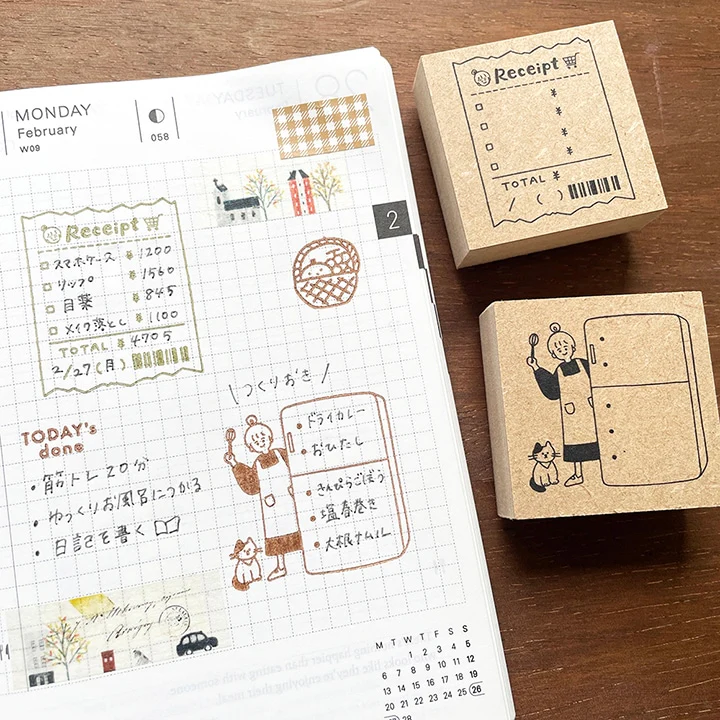 MONDAY
February
W09
058
TUESDAY
2
Receipt
スマホケース ¥ 1200
リップ ¥ 1560
目薬 ¥ 845
メイク落とし ¥ 1100
TOTAL ¥ 4705
2/27(月)
TODAY's
done
・筋トレ 20分
・ゆっくりお風呂につかる
・日記を書く
\つくりおき/
ドライカレー
おひたし
きんぴらごぼう
塩春巻き
大根ナムル
M T W T F S S
1 2 3 4 5
6 7 8 9 10 11 12
13 14 15 16 17 18 19
20 21 22 23 24 25 26
28
Receipt
¥
¥
¥
¥
TOTAL ¥
/ ( )